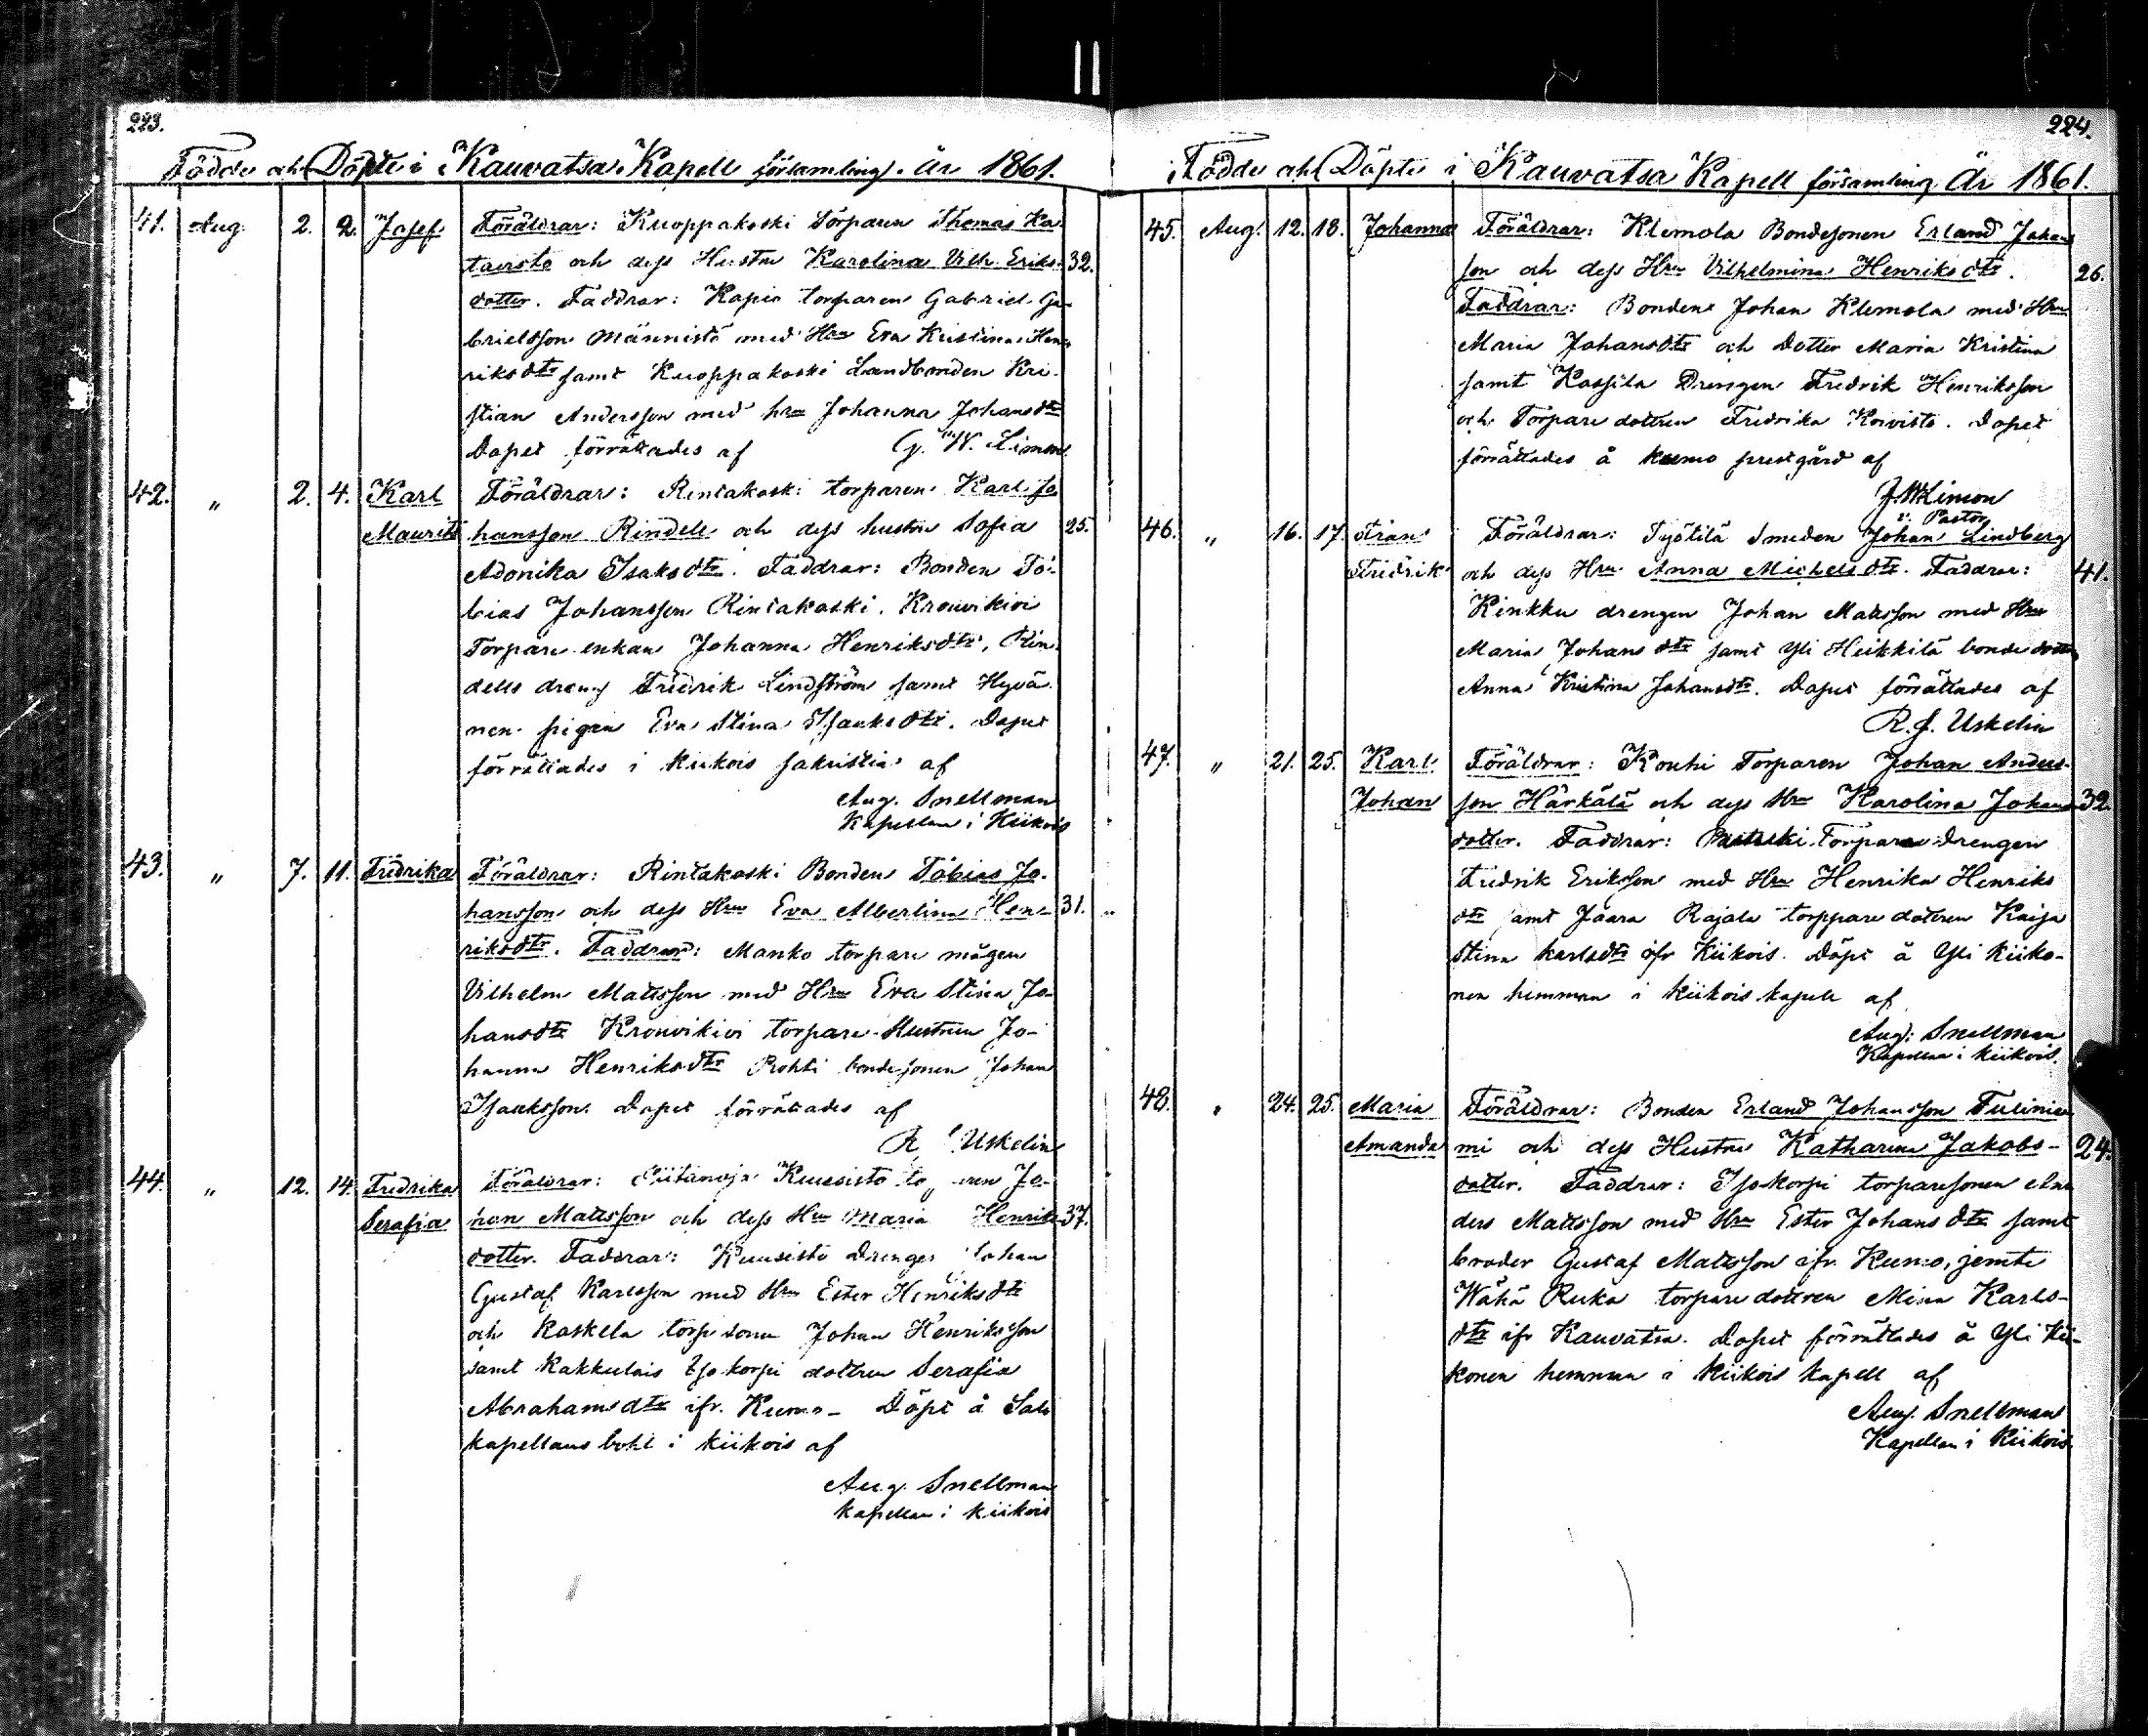 223.
Födde och Döpte i Kauvatsa Kapell församling. År 1861.
41. Aug. 2. 2. Josef Föräldrar: Kuoppakoski Torparen Thomas Ka-
taisto och dess Hustru Karolina Vilh. Eriks- 32.
dotter. Faddrar: torparen Gabriel Ga-
brielsson Männistö med Hru Eva Kristina Hen-
riksdtr samt Kuoppakoski Landbonden Kri-
stian Andersson med hru Johanna Johansdtr
Dopet förrättades af G. W. Limon
42. " 2. 4. Karl Föräldrar: Rintakoski torparen Karl Jo-
Maurits hansson Rindell och dess hustru Sofia 25.
Adonika Isaksdtr. Faddrar: Bonden To-
bias Johansson Rintakoski. Krouvikivi
Torpare enkan Johanna Henriksdtr, Rin-
dells dreng Fredrik Lindström samt Hyvä-
nen pigan Eva Stina Isaaksdtr. Dopet
förrättades i Kiikois sakristia af
Aug. Snellman
Kapellan i Kiikois
43. " 7. 11. Fredrika Föräldrar: Rintakoski Bonden Tobias Jo-
hansson och dess Hru Eva Albertina Hen- 31.
riksdtr. Faddrar: Manko torpare mågen
Vilhelm Mattsson med Hru Eva Stina Jo-
hansdtr Krouvikivi torpare-Hustrun Jo-
hanna Henriksdtr Rohti bondesonen Johan
Isaksson. Dopet förrättades af
R. Uskelin
44. " 12. 14. Fredrika Föräldrar: Kuusisto Jo-
Serafia han Mattsson och dess Hru Maria Henriks- 37.
dotter. Faddrar: Kuusisto Drengen Johan
Gustaf Karlsson med Hru Ester Henriksdtr
och Kaskela Johan Henriksson
samt Kakkulais Isokorpi dottren Serafia
Abrahamsdtr ifr. Kumo - Döpt å
kapellans bohl i Kiikois af
Aug. Snellman
Kapellan i Kiikois
224.
Födde och Döpte i Kauvatsa Kapell församling År 1861.
45. Aug. 12. 18. Johanna Föräldrar: Klemola Bondesonen Erland Johans-
son och dess Hru Vilhelmina Henriksdtr. 26.
Faddrar: Bonden Johan Klemola med Hru
Maria Johansdtr och Dotter Maria Kristina
samt Kassila Drengen Fredrik Henriksson
och Torpare dottren Fredrika Koivisto. Dopet
förrättades å Kumo prestgård af
J. W. Limon
v. Pastor
46. " 16. 17. Frans Föräldrar: Työtilä Smeden Johan Lindberg
Fredrik och dess Hru Anna Michelsdtr. Faddrar: 41.
Kinkku drengen Johan Mattsson med Hru
Maria Johansdtr samt Yli Heikkilä bondedottren
Anna Kristina Johansdtr. Dopet förrättades af
R. J. Uskelin
47. " 21. 25. Karl Föräldrar: Kouhi Torparen Johan Anders-
Johan son Härkälä och dess Hru Karolina Johans- 32.
dotter. Faddrar: Torpare Drengen
Fredrik Eriksson med Hru Henrika Henriks-
dtr samt Jaara Rajala torppare dottren Kaija
Stina Karlsdtr ifr Kiikois. Döpt å Yli Kiiko-
nen hemman i Kiikois kapell af
Aug. Snellman
Kapellan i Kiikois.
48. " 24. 25. Maria Föräldrar: Bonden Erland Johansson Tulinie-
Amanda mi och dess Hustru Katharina Jakobs- 24.
dotter. Faddrar: Isokorpi torparesonen An-
ders Mattsson med Hru Ester Johansdtr samt
broder Gustaf Mattsson ifr. Kumo, jemte
Wähä Ruka torpare dottren Mina Karls-
dtr ifr Kauvatsa. Dopet förrättades å Yli Kii-
konen hemman i Kiikois kapell af
Aug. Snellman
Kapellan i Kiikois